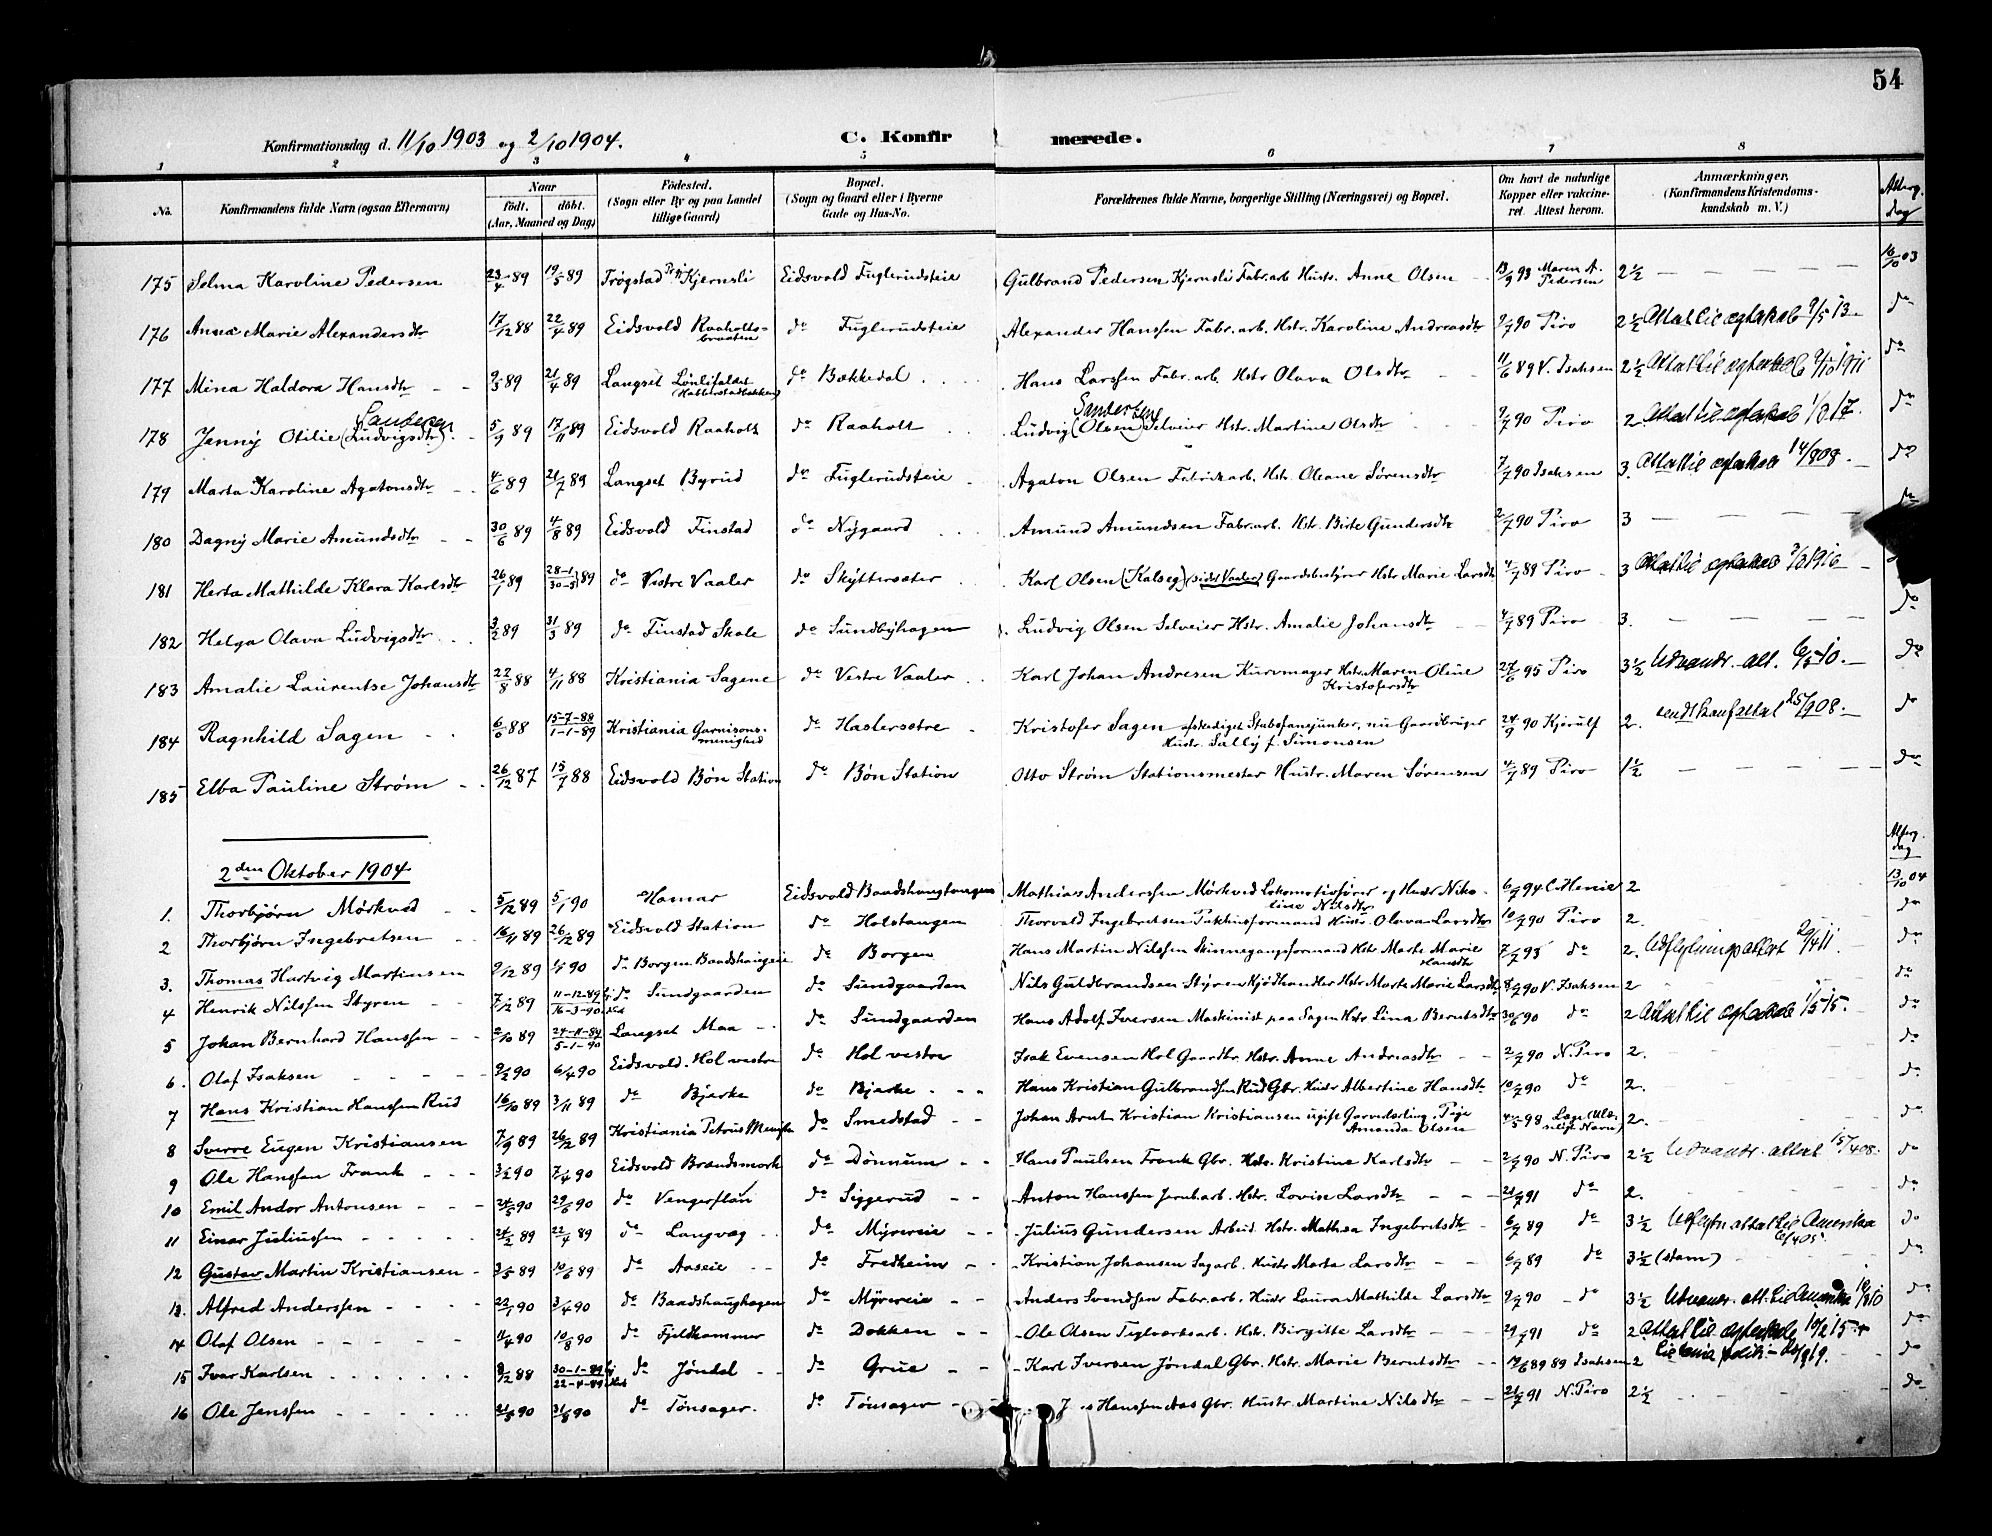 54
Konfirmationsdag d. 11/10 1903 og 2/10 1904. C. Konfirmerede.
1 2 3 4 5 6 7 8
No. Konfirmandens fulde Navn (ogsaa Efternavn) Naar født, døbt. (Aar, Maaned og Dag) Fødested. (Sogn eller By og paa Landet tillige Gaard) Bopæl. (Sogn og Gaard eller i Byerne Gade og Hus-No. Forældrenes fulde Navne, borgerlige Stilling (Næringsvei) og Bopæl. Om havt de naturlige Kopper eller vaccineret. Attest herom. Anmærkninger. (Konfirmandens Kristendomskundskab m. V.) Altergdag
175 Selma Karoline Pedersen 23/4 89 19/5 89 Trøgstad Kjernsli Eidsvold Fuglerudsteie Gulbrand Pedersen Kjernsli Fabr.arb. Hustr. Anne Olsen 13/9 93 Maren A. Pedersen 2 1/2 16/10 03
176 Anna Marie Alexandersdtr 17/12 88 22/4 89 Eidsvold Raaholtsbraaten do Fuglerudsteie Alexander Hanssen Fabr. arb. Hstr. Karoline Andreasdtr 9/7 90 Piro 2 1/2 Attest til egteskab 9/5 13. do
177 Mina Haldora Hansdtr 9/3 89 21/4 89 Langset Lønlifaldet (Habberstadbakken) do Bækkedal Hans Larssen Fabr. arb. Hstr Olava Olsdtr 11/6 89 V. Isaksen 2 1/2 Attest til egteskab 9/10 1911 do
178 Jenny Otilie (Ludvigsdtr) Sandersen 5/9 89 17/11 89 Eidsvold Raaholt do Raaholt Ludvig (Olsen) Sandersen Selveier Hstr. Martine Olsdtr 9/7 90 Piro 2 Attest til egteskab 1/3 17. do
179 Marta Karoline Agatonsdtr 4/6 89 21/7 89 Langset Byrud do Fuglerudsteie Agaton Olsen Fabrikarb. Hstr. Oleane Sørensdtr 7/7 90 Isaksen 3. Attest til egteskab 14/8 08. do
180 Dagny Marie Amundsdtr 30/6 89 4/8 89 Eidsvold Finstad do Nygaard Amund Amundsen Fabr.arb. Hstr. Birte Gundersdtr 2/7 90 Piro 3 do
181 Herta Mathilde Klara Karlsdtr 26/1 89 28-1 30-3 89 do Vestre Vaaler do Skyttersæter Karl Olsen (Kalseg) (sidst Vaaler) Gaardsbestyrer Hstr Marie Larsdtr 4/7 89 Piro 3 Attest til egteskab 1916
182 Helga Olava Ludvigsdtr 3/2 89 31/3 89 do Finstad Skole do Sundbyhagen Ludvig Olsen Selveier Hstr. Amalie Johansdtr 4/7 89 Piro 3. do
183 Amalie Laurentse Johansdtr 22/8 88 4/11 88 Kristiania Sagene do Vestre Vaaler Karl Johan Andresen Kurvmager Hstr. Maren Oline Kristofersdtr 27/6 95 Piro 3 1/2 Udvandr. att. 6/5 10. do
184 Ragnhild Sagen 6/6 88 15-7-88 1-1-89 Kristiania Garnisonsmenighed do Haslersetre Kristofer Sagen afskediget Stabsfanejunker, nu Gaardbruger Hustr. Sally f. Simonsen 24/9 90 Kjerulf 2. sendt konf.attest 25/9 08. do
185 Elba Pauline Strøm 26/12 87 15/7 88 Eidsvold Bøn Station do Bøn Station Otto Strøm Stationsmester Hustr. Maren Sørensen 4/7 89 Piro 1 1/2 do
2den Oktober 1904. Altergdag 13/10 04
1. Thorbjørn Mörkved 5/12 89 5/1 90 Hamar Eidsvold Baadshaugtangen Mathias Anderssen Mörkved Lokomotivfører og Hustr Nikoline Nilsdtr 6/7 94 C. Henie 2
2 Thorbjørn Ingebretsen 16/11 89 26/12 89 Eidsvold Station do Holstangen Thorvald Ingebretsen Pakhusformand Hustr. Olava Larsdtr 10/7 90 Piro 2. do
3. Thomas Hartvig Martinsen 9/12 89 1/1 90 do Borgen Baadshaugeie do Borgen Hans Martin Nilssen Skinnegangsformand Hstr Marte Marie Hansdtr 7/7 95 do 2. Udflytningsattest 29/4 11. do
4 Henrik Nilssen Styren 7/12 89 11-12-89 16-3-90 do Sundgaarden do Sundgaarden Nils Guldbrandsen Styren Kjødhandler Hstr Marte Marie Larsdtr 8/7 90 V. Isaksen 2 do
5 Johan Bernhard Hanssen 2/10 89 24-11-89 5-1-90 Langset Maa do Sundgaarden Hans Adolf Iversen Maskinist paa Sagen Hstr Lina Berntsdtr 30/6 90 do 2 Attest til egteskab 1/5 15. do
6. Olaf Isaksen 9/2 90 6/4 90 Eidsvold. Hol vestre do Hol vestre Isak Evensen Hol Gaardbr. Hstr. Anne Andreasdtr 2/7 90 N. Piro 2. do
7 Hans Kristian Hanssen Rud 16/10 89 3/11 89 do Bjerke do Bjerke Hans Kristian Gulbrandsen Rud Gbr. Hustr Albertine Hansdtr 10/7 90 do 2. do
8 Sverre Eugen Kristiansen 7/9 89 26/12 89 Kristiania Petrus Menigh do Smedstad Johan Arnt Kristian Kristiansen ugift Garverlærling. Pige Amanda Olsen 4/5 98 Læge (Ulæseligt Navn) 2. do
9 Ole Hanssen Frank 3/2 90 7/4 90 Eidsvold Brandsmork do Dønnum Hans Paulsen Frank Gbr. Hstr. Kristine Karlsdtr 2/7 90 N. Piro 2 1/2 Udvandr. attest 15/4 08. do
10 Emil Andor Antonsen 24/5 90 29/6 90 do Vengerflan do Siggerud Anton Hanssen Jernb.arb. Hstr. Lovise Larsdtr 21/7 91 do 2. do
11 Einar Juliussen 24/2 89 22/4 89 do Langvæg do Myrereie Julius Gundersen Arbeid. Hstr. Mathea Ingebretsdtr 6/7 89 do 3 1/2 Udflytn. attest til Amerika 6/4 05. do
12 Gustav Martin Kristiansen 3/5 89 10/6 89 do Aaseie do Fredheim Kristian Johansen Sagarb. Hustr Marte Larsdtr 6/7 89 do 3 1/2 (stam) do
13. Alfred Anderssen 22/1 90 3/4 90 do Baadshaughagen do Myrereie Anders Svendsen Fabr.arb. Hustr Laura Mathilde Larsdtr 9/7 90 do 3 1/2 Udvandr. att. til Amerika 10/3 10 do
14 Olaf Olsen 11/4 90 10/8 90 do Fjeldhammer do Dokken Ole Olsen Teglværksarb. Hstr. Birgitte Larsdtr 29/7 91 do 2 Attest til egteskab 10/2 15. do
15 Ivar Karlsen 8/12 88 30-1-89 22-4-89 do Jøndal do Grue Karl Iversen Jøndal Gbr. Hstr. Marie Berntsdtr 19/6 89 Isaksen 2 do
16 Ole Jenssen 21/5 90 31/8 90 do Tønsager. do Tønsager Hanssen Aas Gbr. Hustr. Martine Nilsdtr 21/7 91 N. Piro 2 1/2 do